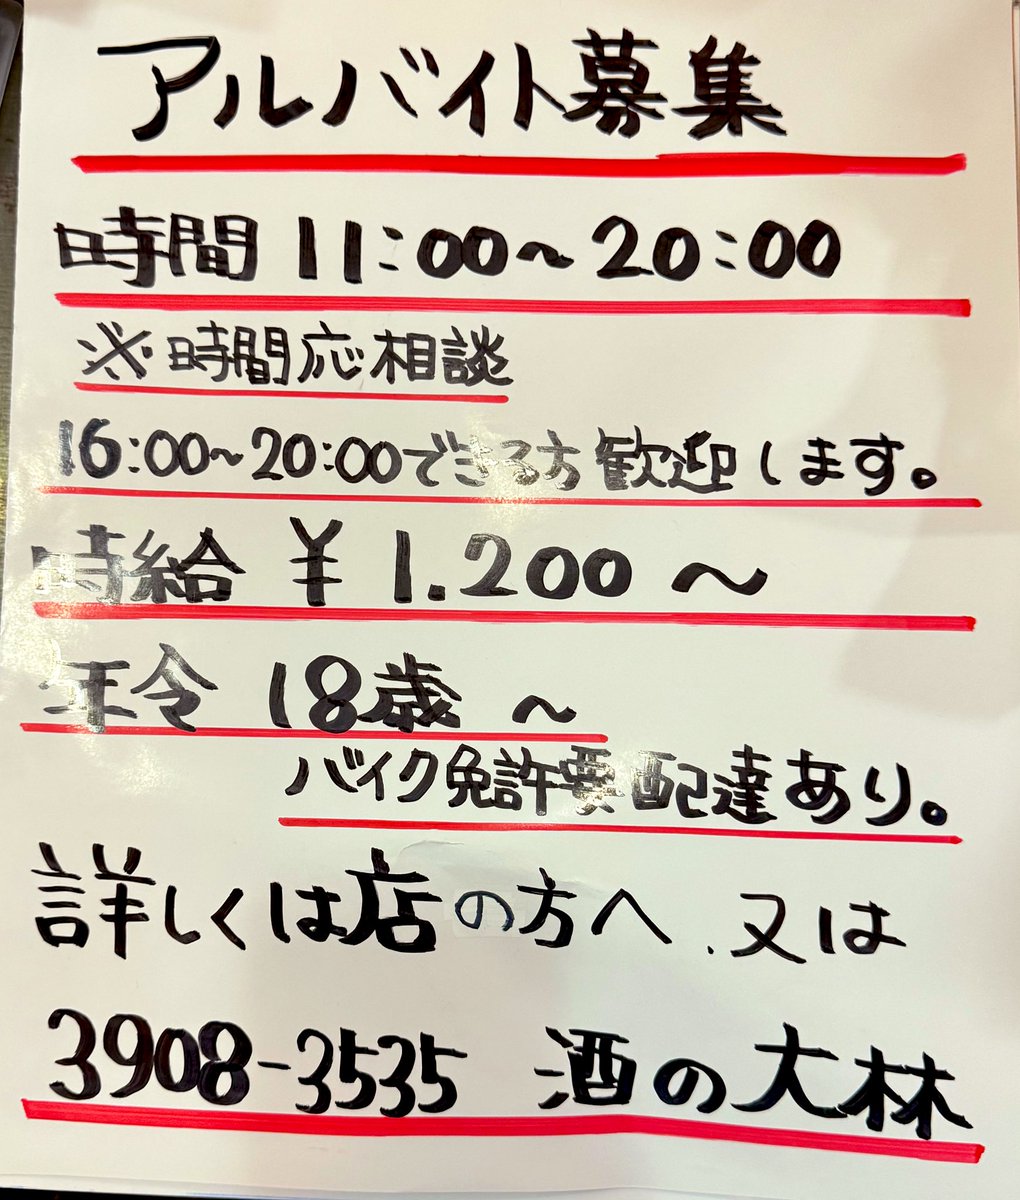 アルバイト募集
時間 11:00〜20:00
※時間応相談
16:00〜20:00できる方歓迎します。
時給 ¥1.200 〜
年令 18歳 〜
バイク免許要 配達あり。
詳しくは店の方へ、又は
3908-3535 酒の大林